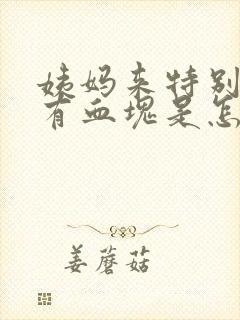 姨妈来特别
有血块是怎
姜蘑菇